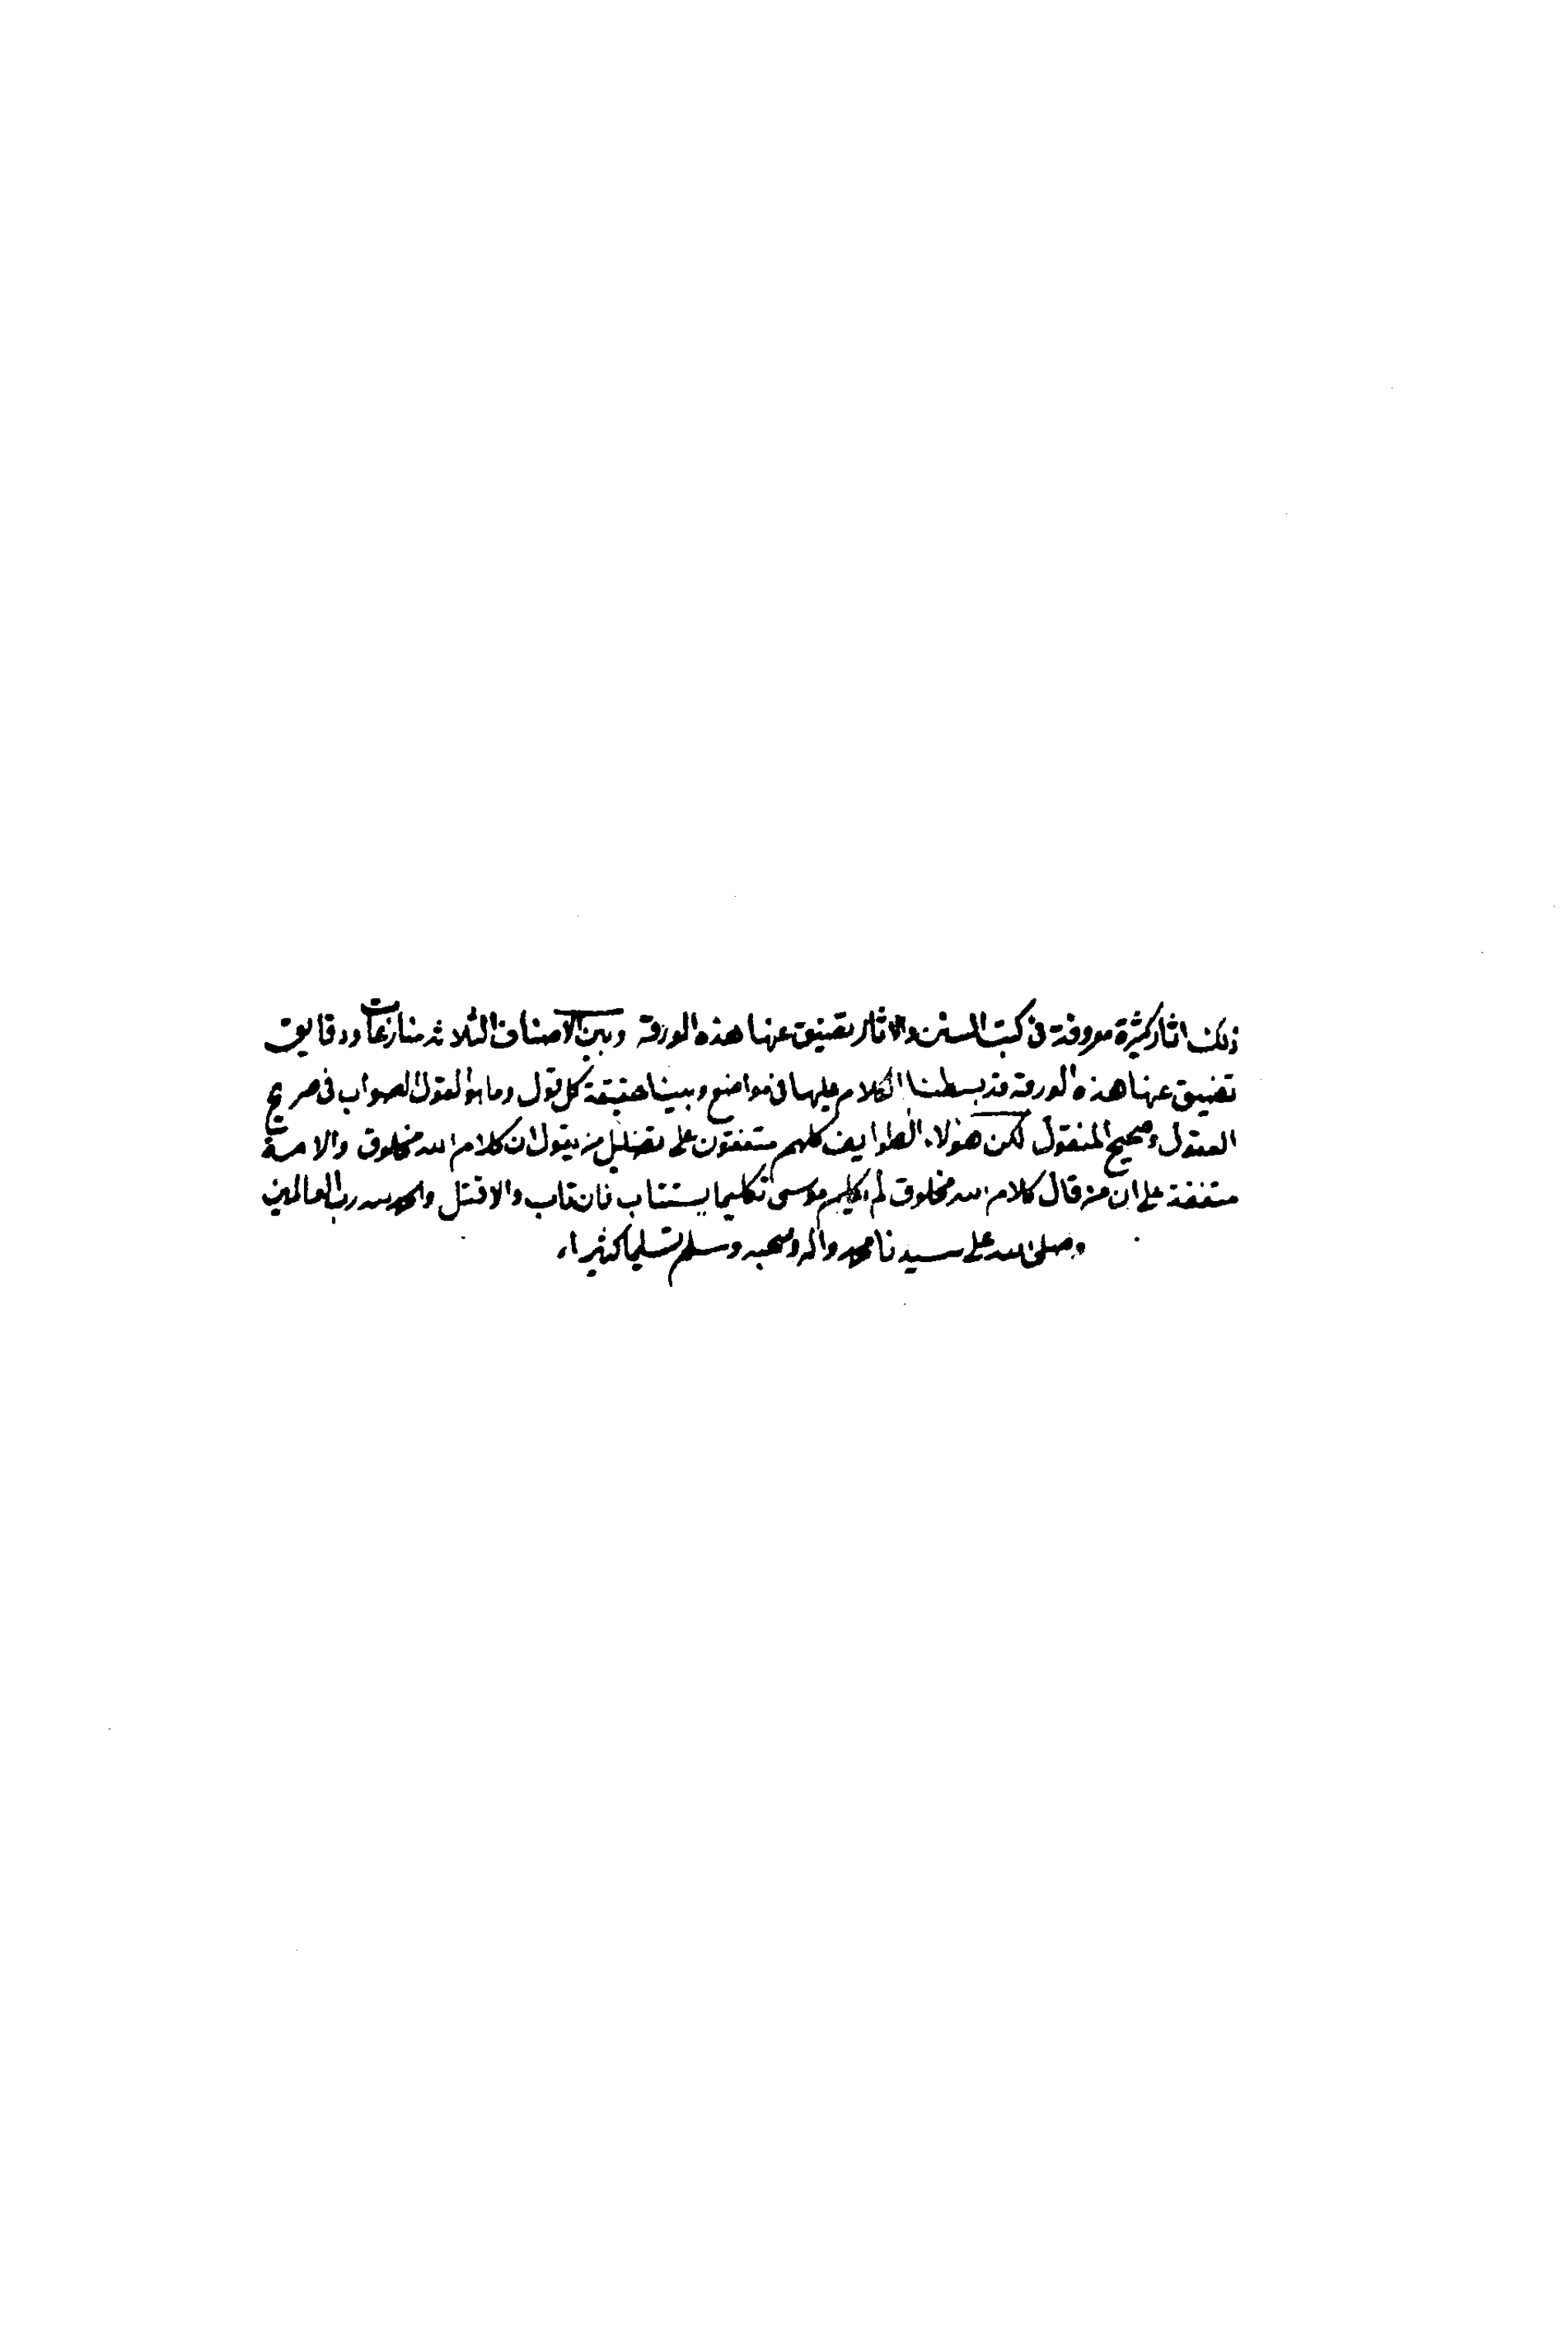 ذلك اثار كثيرة معروفة في كتب السنن والاثار تضيق عنها هذه الورقة وبين الاصناف الثلاثه منازعات ودقايق
تضيق عنها هذه الورقة قد بسطنا الكلام عليها في مواضع وبينا حقيقة كل قول وما هو القول الصواب في صريح
المعقول وصحيح المنقول لكن هولاء الطوايف كلهم متفقون على تضليل من يقول ان كلام الله مخلوق والامة
متفقة على ان من قال كلام الله مخلوق لم يكلم موسى تكليما يستتاب فان تاب والا قتل والحمد لله رب العالمين
وصلى الله على سيدنا محمد واله وصحبه وسلم تسليما كثيرا